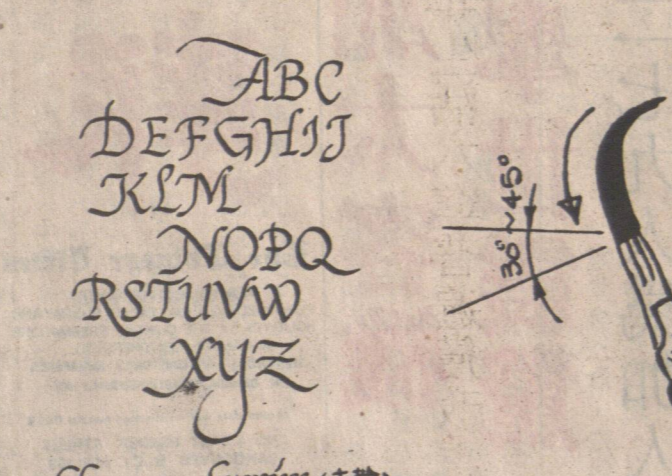 ABC
DEFGHIJ
KLM
NOPQ
RSTUVW
XYZ
30° ~45°